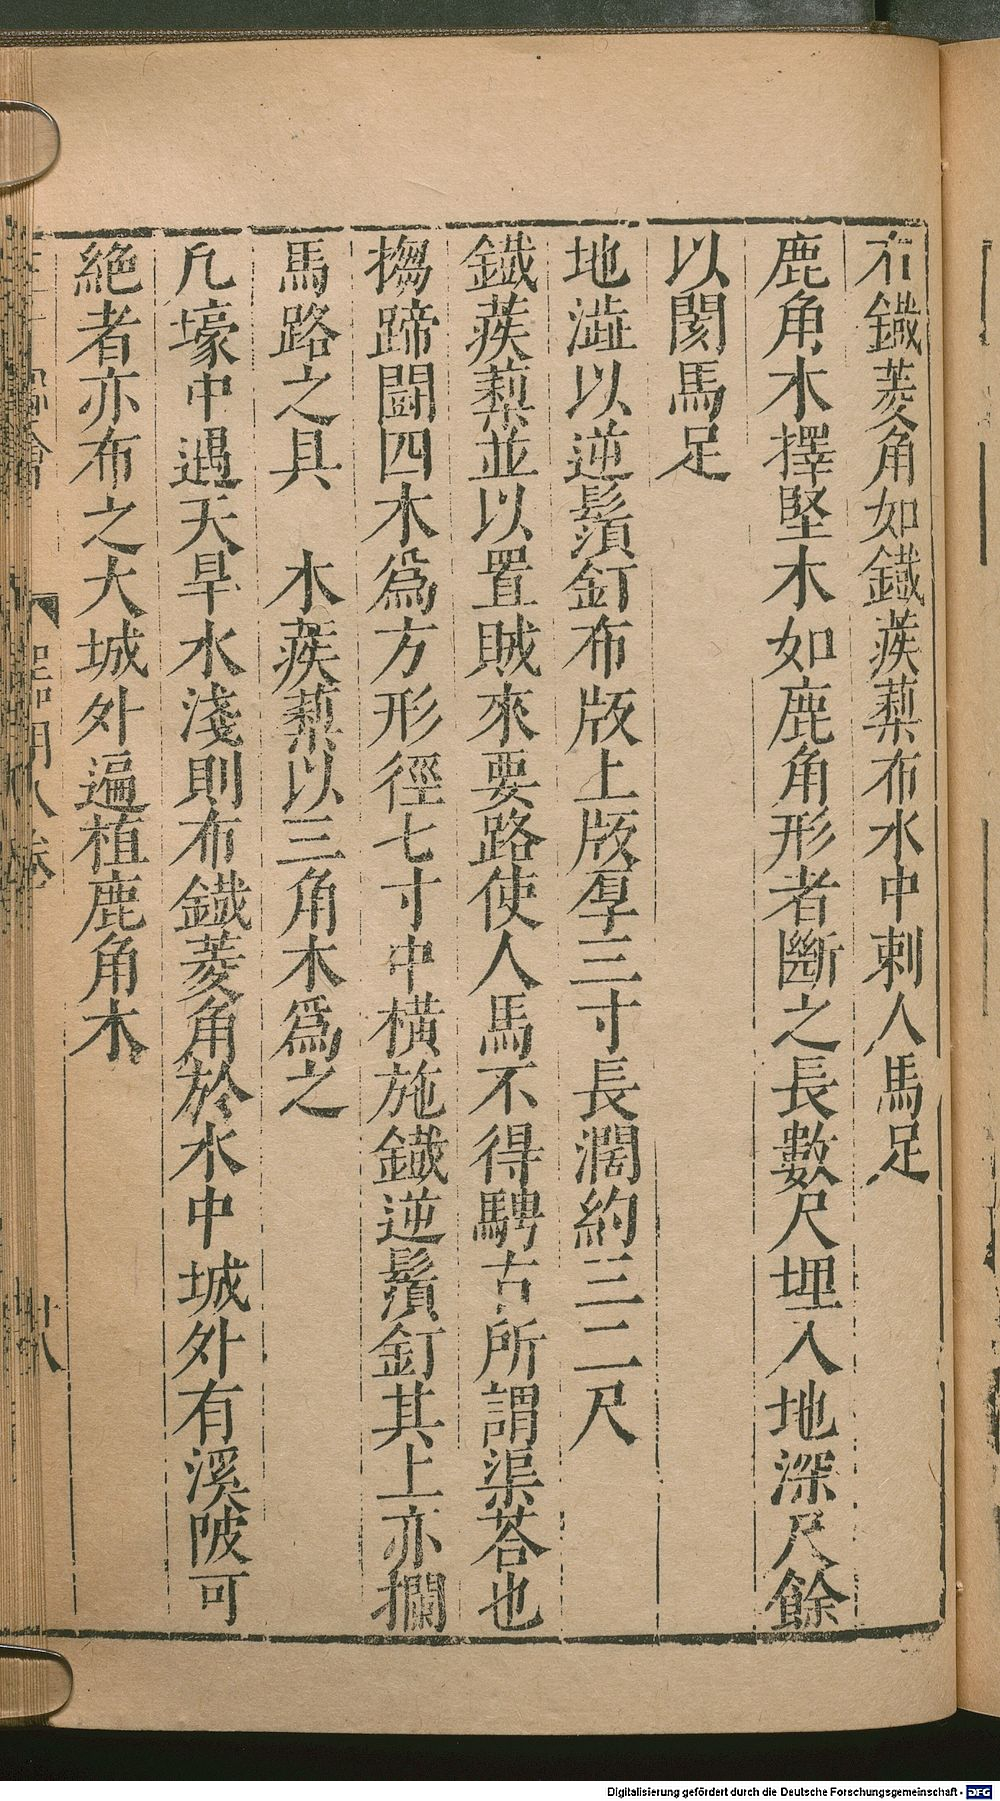 右鐡菱角如鐡蒺蔾布水中刺人馬足
鹿角木擇堅木如鹿角形者斷之長數尺埋入地深尺餘
以閡馬足
地澁以逆鬚釘布版上版厚三寸長濶約三二尺
鐡蒺蔾並以置賊來要路使人馬不得騁古所謂渠荅也
搊蹄鬪四木爲方形徑七寸中橫施鐡逆鬚釘其上亦攔
馬路之具 木蒺蔾以三角木爲之
凡壕中遇天旱水淺則布鐡菱角於水中城外有溪陂可
絶者亦布之大城外遍植鹿角木
器用八卷
廿八
Digitalisierung gefördert durch die Deutsche Forschungsgemeinschaft - DFG